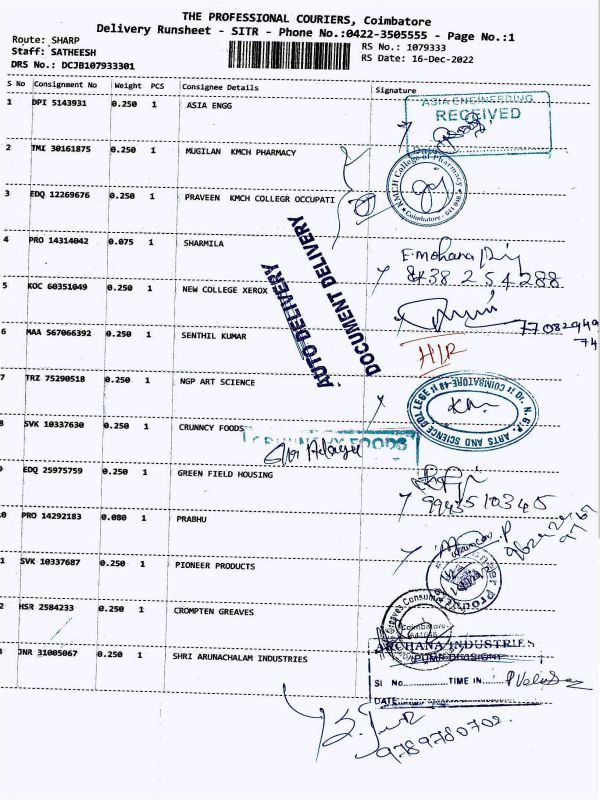 THE PROFESSIONAL COURIERS, Coimbatore
Delivery Runsheet - SITR - Phone No.:0422-3505555 - Page No.:1
Route: SHARP
RS No.: 1079333
Staff: SATHEESH
RS Date: 16-Dec-2022
DRS No.: DCJB107933301
S No Consignment No Weight PCS Consignee Details Signature
1 DPI 5143931 0.250 1 ASIA ENGG
ASIA ENGINEERING
RECEIVED
2 TMI 30161875 0.250 1 MUGILAN KMCH PHARMACY
KMCH College of Pharmacy
Coimbatore
3 EDQ 12269676 0.250 1 PRAVEEN KMCH COLLEGR OCCUPATI
4 PRO 14314042 0.075 1 SHARMILA
E.mohana
8438 254288
AUTO DELIVERY
DOCUMENT DELIVERY
5 KOC 60351049 0.250 1 NEW COLLEGE XEROX
6 MAA 567066392 0.250 1 SENTHIL KUMAR
H/R
7 TRZ 75290518 0.250 1 NGP ART SCIENCE
Dr. N.G.P. ARTS AND SCIENCE COLLEGE
COIMBATORE-48
8 SVK 10337630 0.250 1 CRUNNCY FOODS
CRUNNCY FOODS
9 EDQ 25975759 0.250 1 GREEN FIELD HOUSING
9943510345
0 PRO 14292183 0.080 1 PRABHU
1 SVK 10337687 0.250 1 PIONEER PRODUCTS
2 HSR 2584233 0.250 1 CROMPTEN GREAVES
Greaves Consume
Coimbatore
3 JNR 31005067 0.250 1 SHRI ARUNACHALAM INDUSTRIES
ARCHANA INDUSTRIES
SI No. TIME IN:
DATE
9789780702.